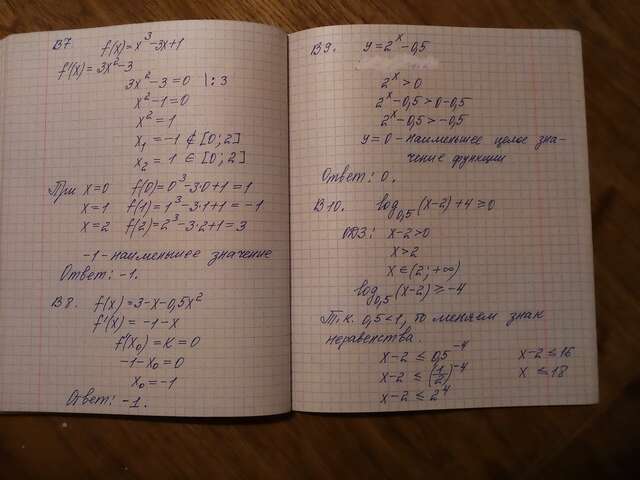 В7. f(x)=x³-3x+1
f'(x)=3x²-3
3x²-3=0 |:3
x²-1=0
x²=1
x₁=-1 ∉ [0;2]
x₂=1 ∈ [0;2]
При x=0 f(0)=0³-3·0+1=1
x=1 f(1)=1³-3·1+1=-1
x=2 f(2)=2³-3·2+1=3
-1-наименьшее значение
Ответ: -1.
В8. f(x)=3-x-0,5x²
f'(x)=-1-x
f'(x₀)=K=0
-1-x₀=0
x₀=-1
Ответ: -1.
В9. y=2ˣ-0,5
2ˣ>0
2ˣ-0,5>0-0,5
2ˣ-0,5>-0,5
y=0-наименьшее целое зна-
чение функции
Ответ: 0.
В10. log₀,₅(x-2)+4≥0
ОДЗ: x-2>0
x>2
x∈(2;+∞)
log₀,₅(x-2)≥-4
Т.к. 0,5<1, то меняем знак
неравенства.
x-2≤0,5⁻⁴ x-2≤16
x-2≤(1/2)⁻⁴ x≤18
x-2≤2⁴